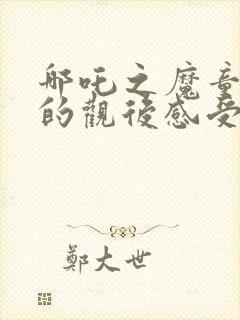 哪吒之魔童
的觀後感受
鄭大世